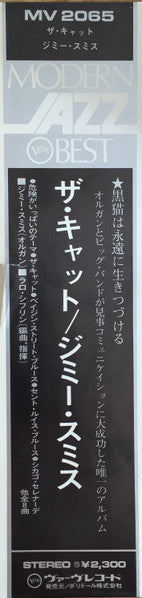 MV 2065
ザ・キャット
ジミー・スミス
MODERN
JAZZ
Verve
BEST
★黒猫は永遠に生きつづける
オルガンとビッグ・バンドが見事コミュニケイションに大成功した唯一のアルバム
ザ・キャット/ジミー・スミス
●危険がいっぱいのテーマ●ザ・キャット●ベイジン・ストリート・ブルース●セント・ルイス・ブルース●シカゴ・セレナーデ
他全8曲
■ジミー・スミス(オルガン) ■ラロ・シフリン(編曲、指揮)
STEREO Ⓢ¥2,300
Verve
ヴァーヴ レコード
発売元/ポリドール株式会社